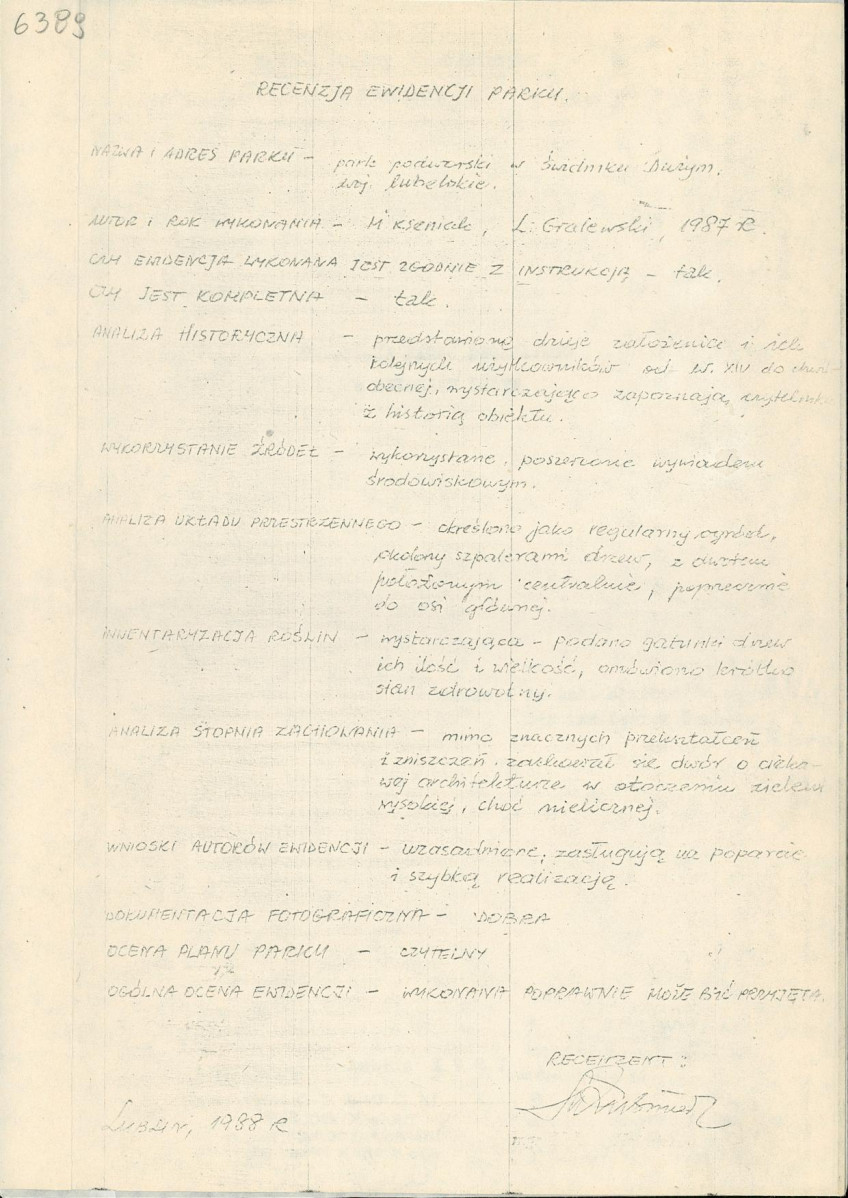 6389
RECENZJA EWIDENCJI PARKU.
NAZWA I ADRES PARKU – park podworski w Świdniku Dużym.
woj. lubelskie.
AUTOR I ROK WYKONANIA – M Kseniak, L. Gralewski, 1987 R.
CZY EWIDENCJA WYKONANA JEST ZGODNIE Z INSTRUKCJĄ – tak.
CZY JEST KOMPLETNA – tak.
ANALIZA HISTORYCZNA – przedstawione dzieje założenia i ich
kolejnych użytkowników od w. XIV do chwili
obecnej, wystarczająco zapoznają czytelnika
z historią obiektu.
WYKORZYSTANIE ŹRÓDEŁ – wykorzystane, poszerzone wywiadem
środowiskowym.
ANALIZA UKŁADU PRZESTRZENNEGO – określono jako regularny ogród,
okolony szpalerami drzew, z dworem
położonym centralnie, poprzecznie
do osi głównej.
INWENTARYZACJA ROŚLIN – wystarczająca – podano gatunki drzew
ich ilość i wielkość, omówiono krótko
stan zdrowotny.
ANALIZA STOPNIA ZACHOWANIA – mimo znacznych przekształceń
i zniszczeń zachował się dwór o cieka-
wej architekturze w otoczeniu zieleni
wysokiej, choć nielicznej.
WNIOSKI AUTORÓW EWIDENCJI – uzasadnione, zasługują na poparcie
i szybką realizację.
DOKUMENTACJA FOTOGRAFICZNA – DOBRA
OCENA PLANU PARKU – CZYTELNY
OGÓLNA OCENA EWIDENCJI – WYKONANA POPRAWNIE MOŻE BYĆ PRZYJĘTA.
RECENZENT:
LUBLIN, 1988 R.